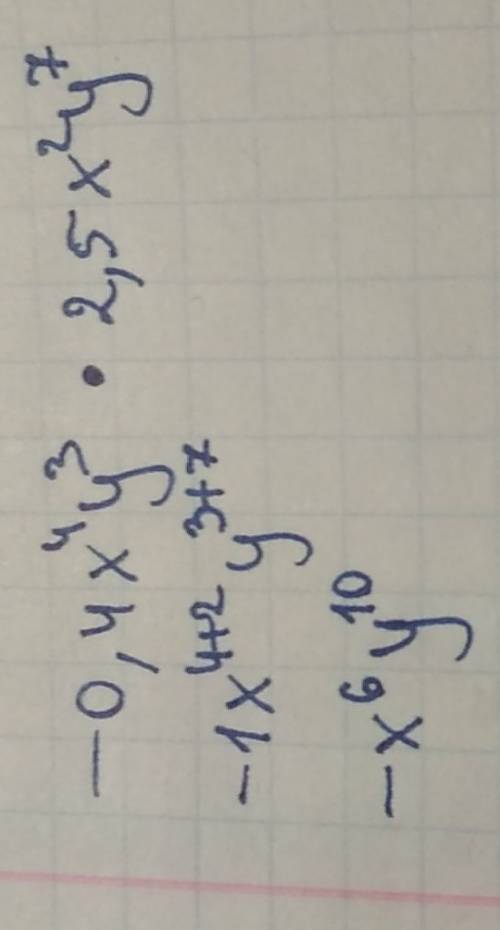 −0,4x⁴y³ • 2,5x²y⁷
−1x⁴⁺²y³⁺⁷
−x⁶y¹⁰